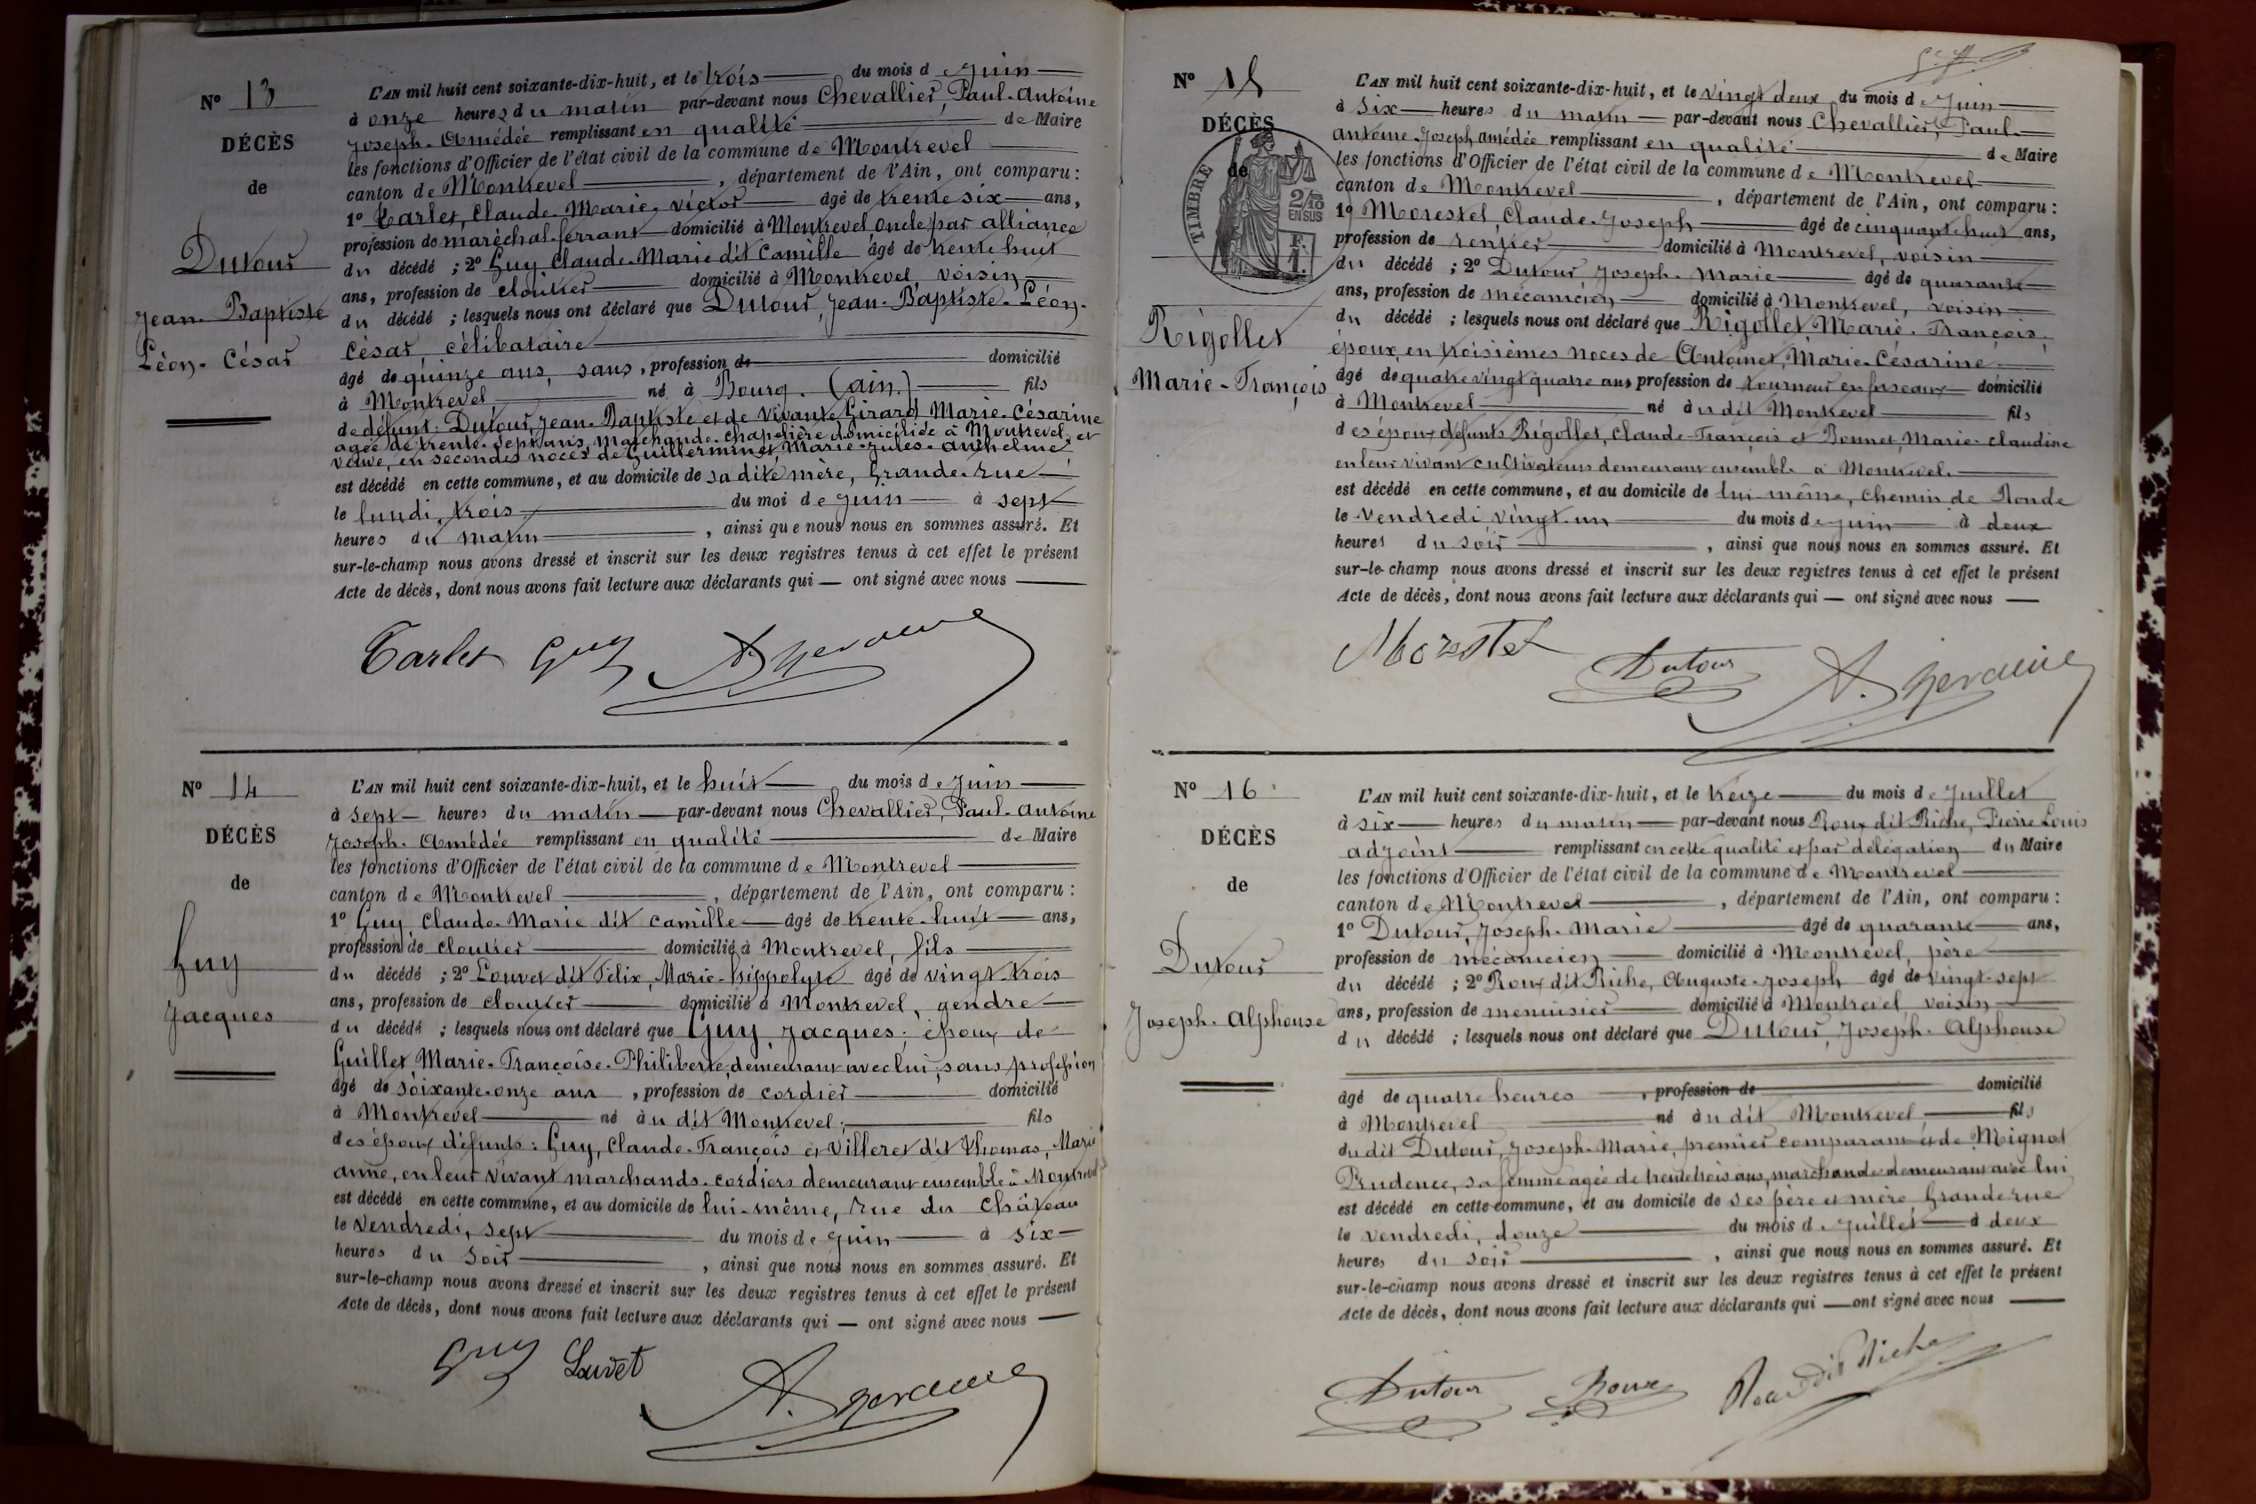 N° 13
DÉCÈS
de
Dutour
Jean-Baptiste
Léon-César
L'AN mil huit cent soixante-dix-huit, et le trois du mois de Juin
à onze heures du matin par-devant nous Chevallier, Paul-Antoine
Joseph-Amédée remplissant en qualité de Maire
les fonctions d'Officier de l'état civil de la commune de Montrevel
canton de Montrevel, département de l'Ain, ont comparu :
1° Carlet, Claude-Marie-Victor âgé de trente six ans,
profession de maréchal-ferrant domicilié à Montrevel, oncle par alliance
du décédé ; 2° Guy Claude-Marie dit Camille âgé de trente huit
ans, profession de cloutier domicilié à Montrevel, voisin
du décédé ; lesquels nous ont déclaré que Dutour, Jean-Baptiste-Léon-
César, célibataire
âgé de quinze ans, sans, profession de domicilié
à Montrevel né à Bourg (ain.) fils
de défunt Dutour, Jean-Baptiste et de vivante Girard Marie-Césarine
agée de trente-sept ans, marchande-chapelière domiciliée à Montrevel, et
veuve, en secondes noces de Guillerminet, Marie-Jules-Anthelme
est décédé en cette commune, et au domicile de sa dite mère, Grande-rue
le lundi, trois du mois de juin à sept
heures du matin, ainsi que nous nous en sommes assuré. Et
sur-le-champ nous avons dressé et inscrit sur les deux registres tenus à cet effet le présent
Acte de décès, dont nous avons fait lecture aux déclarants qui — ont signé avec nous
Carlet Guy
N° 14
DÉCÈS
de
Guy
Jacques
L'AN mil huit cent soixante-dix-huit, et le huit du mois de Juin
à sept heures du matin par-devant nous Chevallier, Paul-Antoine
Joseph-Amédée remplissant en qualité de Maire
les fonctions d'Officier de l'état civil de la commune de Montrevel
canton de Montrevel, département de l'Ain, ont comparu :
1° Guy, Claude-Marie dit Camille âgé de trente-huit ans,
profession de cloutier domicilié à Montrevel, fils
du décédé ; 2° Louvet dit Félix, Marie-Hippolyte âgé de vingt trois
ans, profession de cloutier domicilié à Montrevel, gendre
du décédé ; lesquels nous ont déclaré que Guy, Jacques, époux de
Guillet, Marie-Françoise-Philiberte, demeurant avec lui, sans profession
âgé de soixante-onze ans, profession de cordier domicilié
à Montrevel né à u dit Montrevel, fils
des époux défunts : Guy, Claude-François et Villeret dit Thomas, Marie
anne, en leur vivant marchands-cordiers demeurant ensemble à Montrevel
est décédé en cette commune, et au domicile de lui-même, rue du Château
le Vendredi, sept du mois de juin à six
heures du soir, ainsi que nous nous en sommes assuré. Et
sur-le-champ nous avons dressé et inscrit sur les deux registres tenus à cet effet le présent
Acte de décès, dont nous avons fait lecture aux déclarants qui — ont signé avec nous
Guy Luvet
N° 15
DÉCÈS
de
TIMBRE
2/10
EN SUS
Rigollet
Marie-François
L'AN mil huit cent soixante-dix-huit, et le vingt deux du mois de Juin
à six heures du matin par-devant nous Chevallier, Paul-
Antoine-Joseph amédée remplissant en qualité de Maire
les fonctions d'Officier de l'état civil de la commune de Montrevel
canton de Montrevel, département de l'Ain, ont comparu :
1° Morestel, Claude-Joseph âgé de cinquante huit ans,
profession de rentier domicilié à Montrevel, voisin
du décédé ; 2° Dutour Joseph-Marie âgé de quarante
ans, profession de mécanicien domicilié à Montrevel, voisin
du décédé ; lesquels nous ont déclaré que Rigollet Marie-François,
époux, en troisièmes noces de Antoinet, Marie-Césarine
âgé de quatre vingt quatre ans profession de tourneur en fuseaux domicilié
à Montrevel né à u dit Montrevel fils
des époux défunts Rigollet, Claude-François et Bonnet, Marie-Claudine
en leur vivant cultivateurs demeurant ensemble à Montrevel
est décédé en cette commune, et au domicile de lui-même, Chemin de Ronde
le Vendredi vingt-un du mois de juin à deux
heures du soir, ainsi que nous nous en sommes assuré. Et
sur-le-champ nous avons dressé et inscrit sur les deux registres tenus à cet effet le présent
Acte de décès, dont nous avons fait lecture aux déclarants qui — ont signé avec nous
Morestel Dutour
N° 16
DÉCÈS
de
Dutour
Joseph-Alphonse
L'AN mil huit cent soixante-dix-huit, et le treize du mois de Juillet
à six heures du matin par-devant nous Roux dit Riche, Pierre Louis
adjoint remplissant en cette qualité et par délégation du Maire
les fonctions d'Officier de l'état civil de la commune de Montrevel
canton de Montrevel, département de l'Ain, ont comparu :
1° Dutour, Joseph-Marie âgé de quarante ans,
profession de mécanicien domicilié à Montrevel, père
du décédé ; 2° Roux dit Riche, Auguste-Joseph âgé de vingt-sept
ans, profession de menuisier domicilié à Montrevel voisin
du décédé ; lesquels nous ont déclaré que Dutour, Joseph-Alphonse
âgé de quatre heures, profession de domicilié
à Montrevel né à u dit Montrevel, fils
du dit Dutour, Joseph-Marie, premier comparant et de Mignot
Prudence, sa femme agée de trente trois ans, marchande demeurant avec lui
est décédé en cette commune, et au domicile de ses père et mère Grande rue
le vendredi, douze du mois de juillet à deux
heures du soir, ainsi que nous nous en sommes assuré. Et
sur-le-champ nous avons dressé et inscrit sur les deux registres tenus à cet effet le présent
Acte de décès, dont nous avons fait lecture aux déclarants qui — ont signé avec nous
Dutour Roux Roux dit Riche